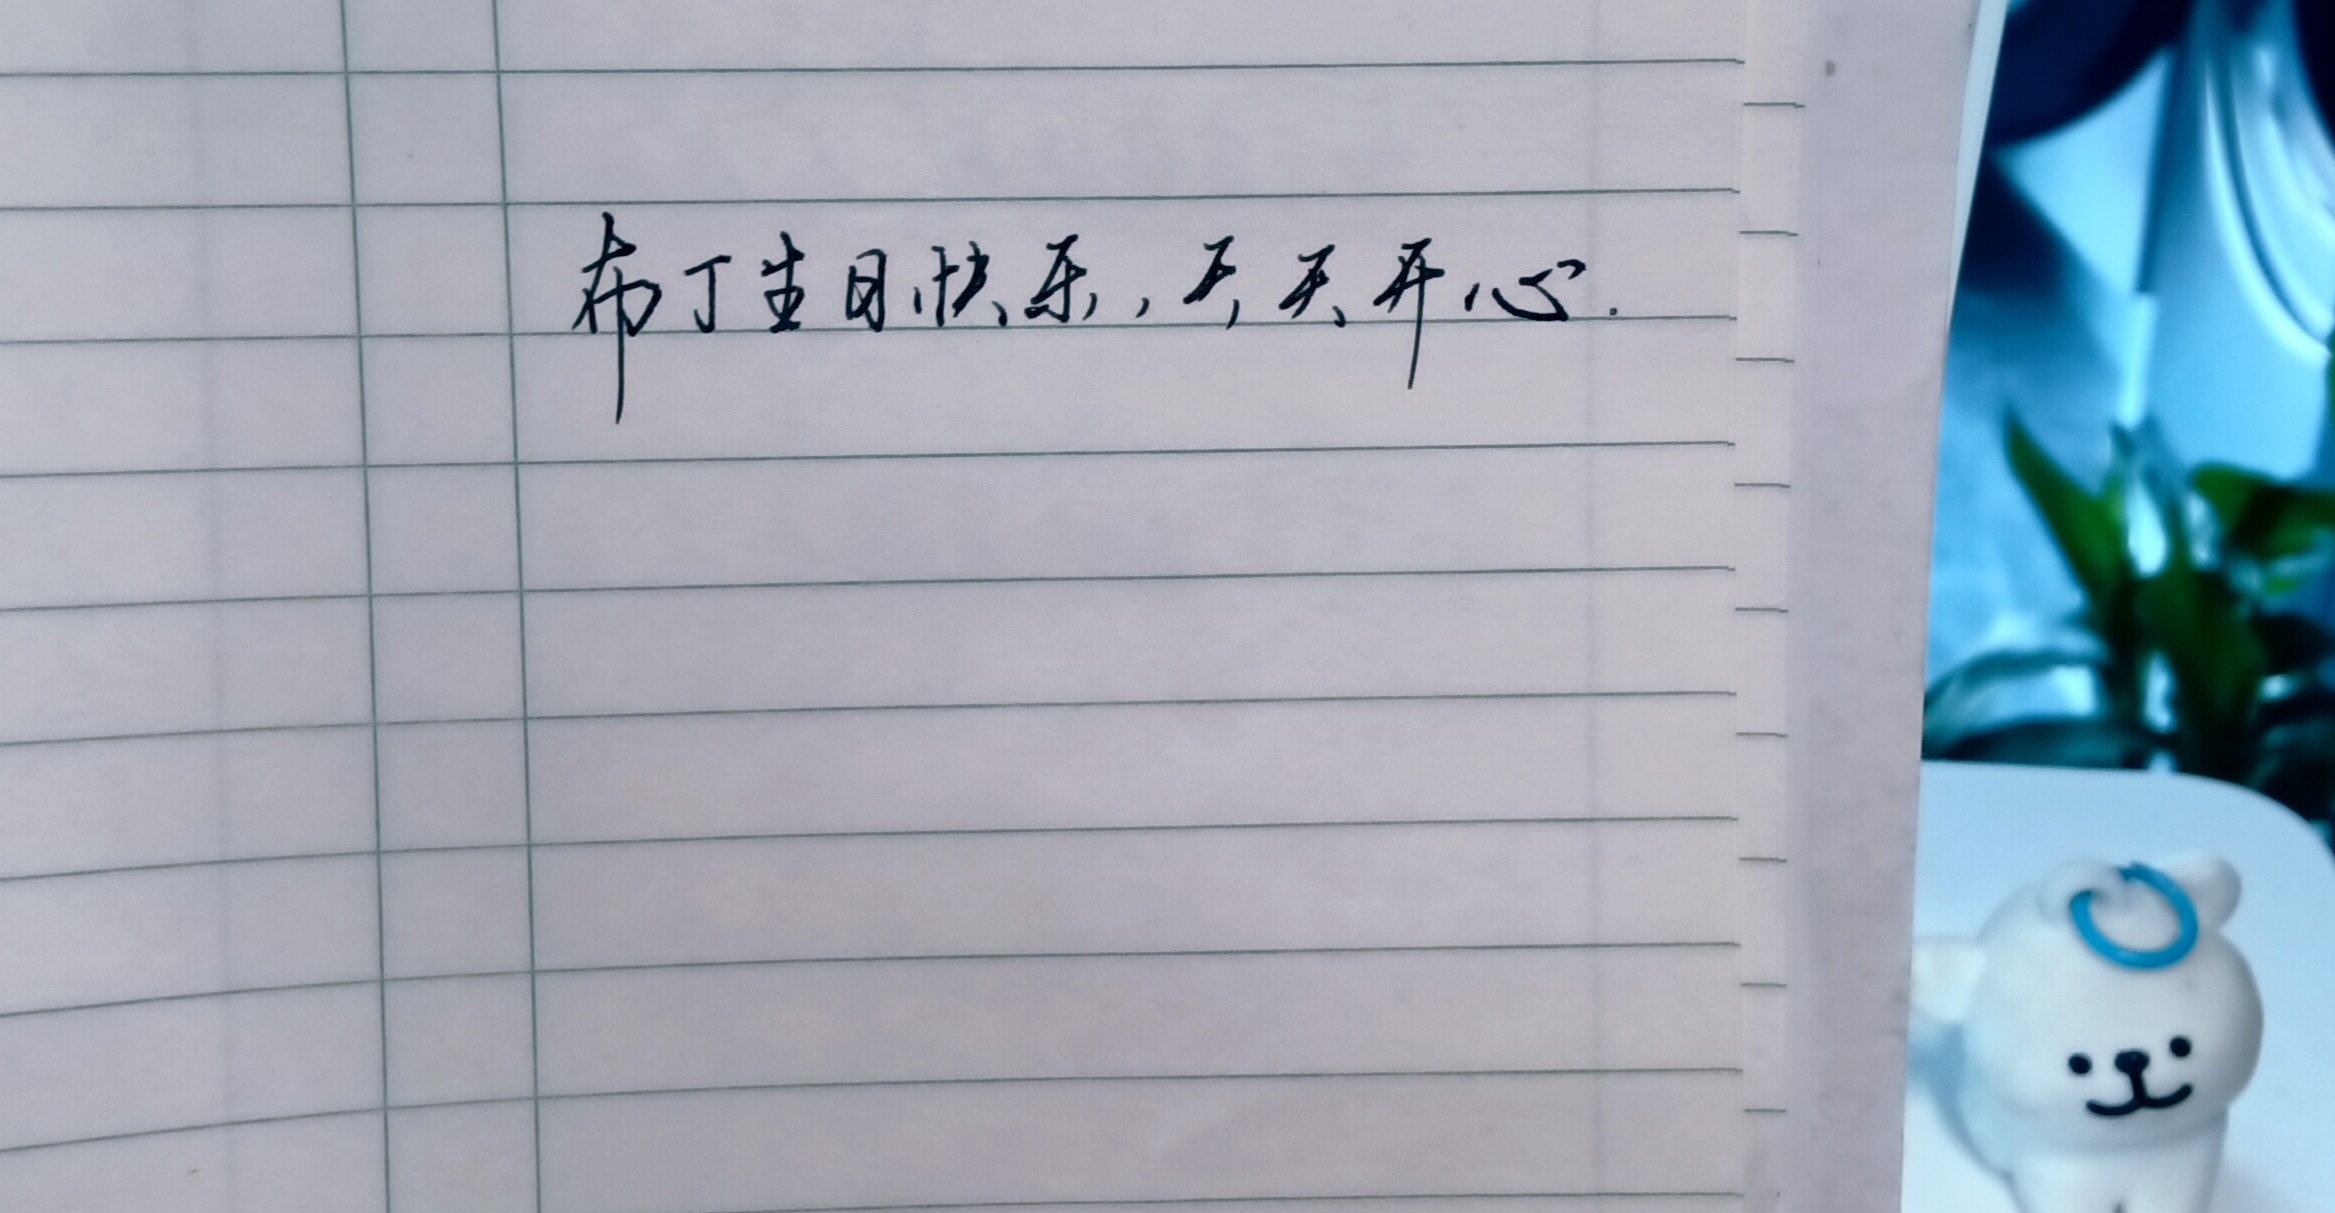 布丁生日快乐，天天开心.